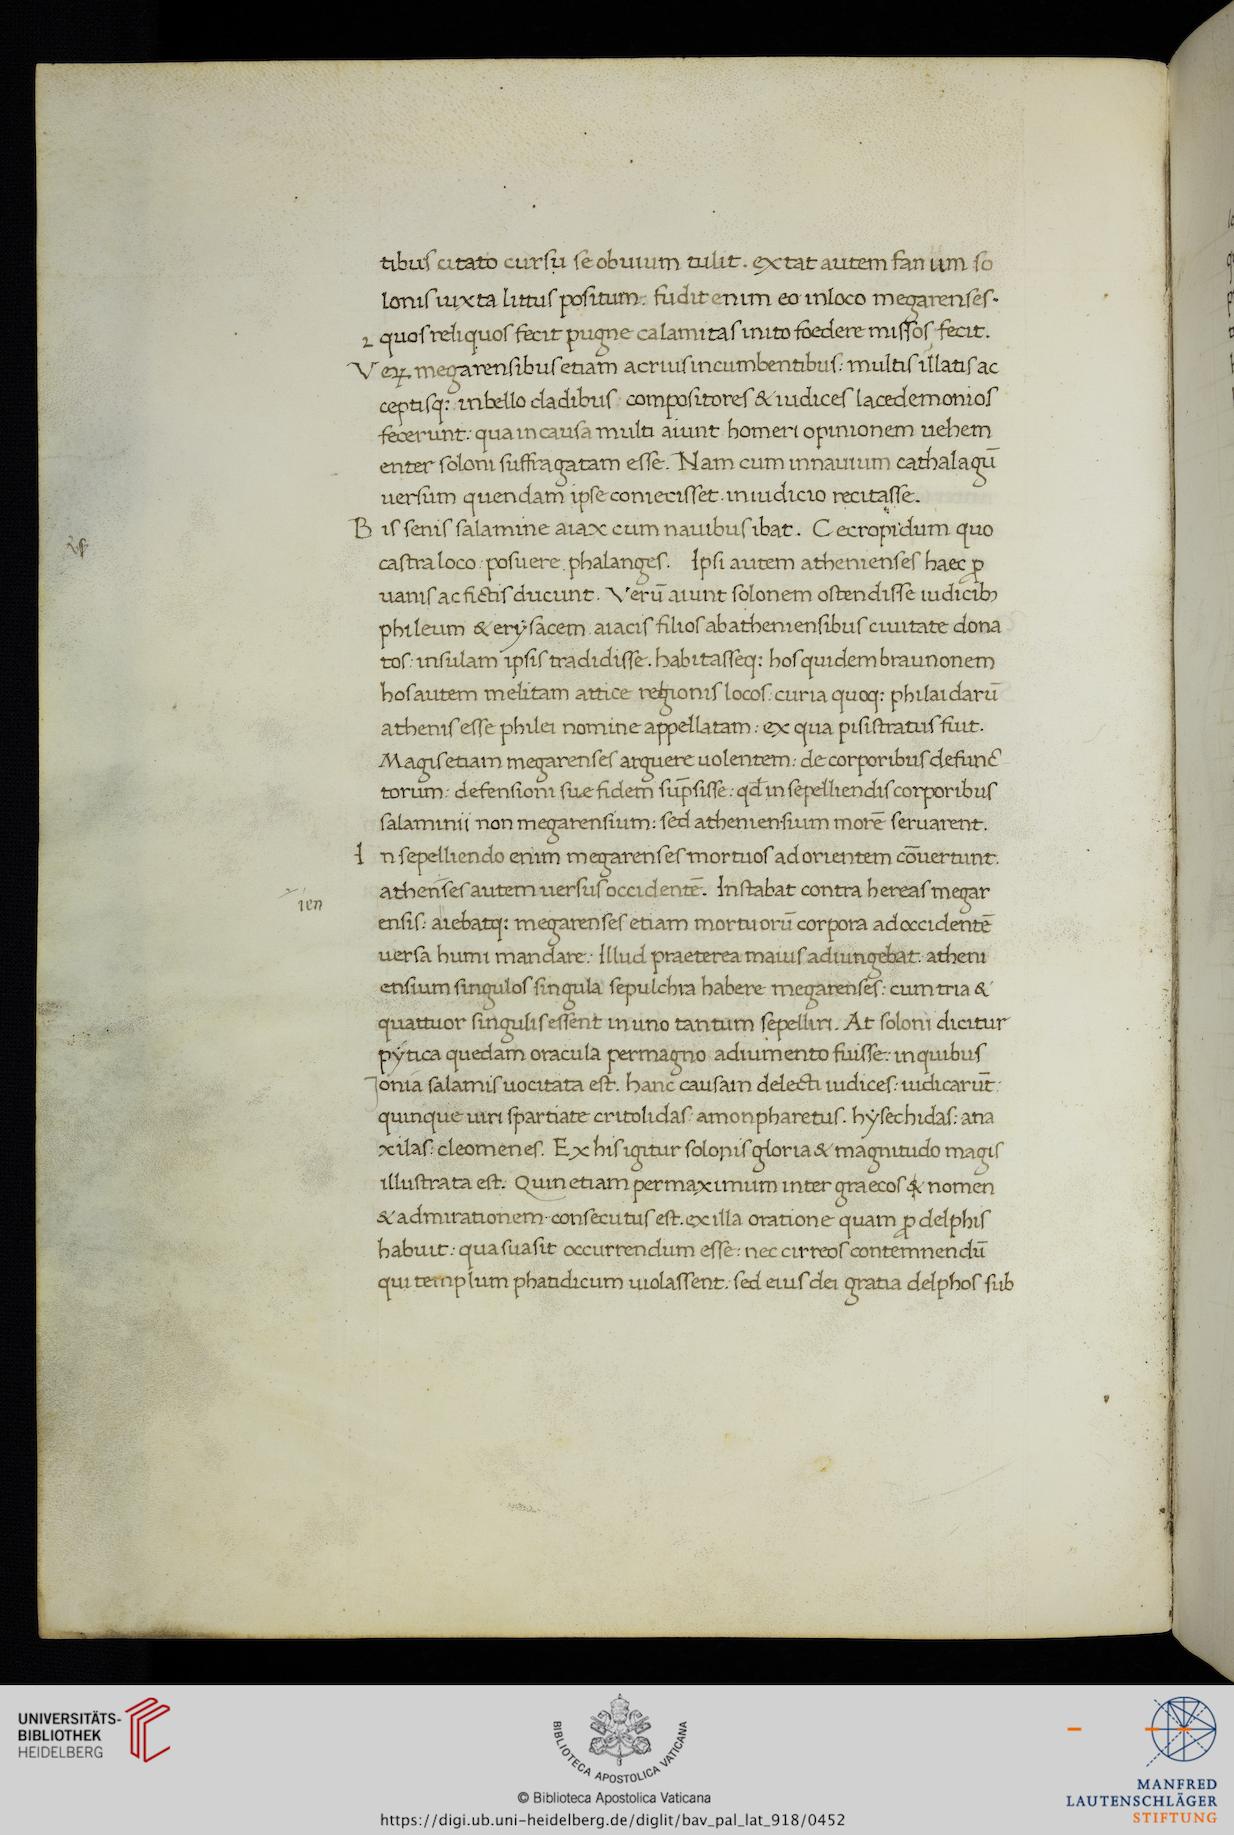 tibus citato cursu se obuium tulit. extat autem fanum so
lonis iuxta littus positum: fudit enim eo inloco megarenses.
quos reliquos fecit pugne calamitas inito foedere missos fecit.
Veꝝ megarensibus etiam acrius incumbentibus: multis illatis ac
ceptisq: inbello cladibus compositores & iudices lacedemonios
fecerunt: qua in causa multi aiunt homeri opinionem uehem
enter soloni suffragatam esse. Nam cum innauium cathalagū
uersum quendam ipse coniecisset. in iudicio recitasse.
Bis senis salamine aiax cum nauibus ibat. Cecropidum quo
castra loco posuere phalanges. Ipsi autem athenienses haec ꝓ
uanis ac fictis ducunt. Verū aiunt solonem ostendisse iudicibꝫ
phileum & erẏsacem aiacis filios ab atheniensibus ciuitate dona
tos: insulam ipsis tradidisse. habitasseq: hos quidem braunonem
hos autem melitam attice regionis locos: curia quoq: philaidarū
athenis esse philei nomine appellatam: ex qua pisistratus fuit.
Magis etiam megarenses arguere uolentem: de corporibus defunc
torum: defensioni sue fidem sūpsisse: qđ in sepelliendis corporibus
salaminii non megarensium: sed atheniensium morē seruarent.
In sepelliendo enim megarenses mortuos ad orientem cōuertunt:
athenses autem uersus occidentē. Instabat contra hereas megar
ien
ensis: aiebatq: megarenses etiam mortuorū corpora ad occidentē
uersa humi mandare: Illud praeterea maius adiungebat: atheni
ensium singulos singula sepulchra habere megarenses: cum tria &
quattuor singulis essent in uno tantum sepelliri. At soloni dicitur
pẏtica quedam oracula permagno adiumento fuisse: in quibus
Jonia salamis uocitata est. hanc causam delecti iudices: iudicarūt:
quinque uiri spartiate critolidas: amonpharetus. hẏsechidas: ana
xilas: cleomenes. Ex his igitur solonis gloria & magnitudo magis
illustrata est. Quin etiam permaximum inter graecos & nomen
& admirationem consecutus est. ex illa oratione quam ꝓ delphis
habuit: qua suasit occurrendum esse: nec cirreos contemnendū
qui templum phatidicum uiolassent: sed eius dei gratia delphos sub
UNIVERSITÄTS-
BIBLIOTHEK
HEIDELBERG
BIBLIOTECA APOSTOLICA VATICANA
© Biblioteca Apostolica Vaticana
https://digi.ub.uni-heidelberg.de/diglit/bav_pal_lat_918/0452
MANFRED
LAUTENSCHLÄGER
STIFTUNG